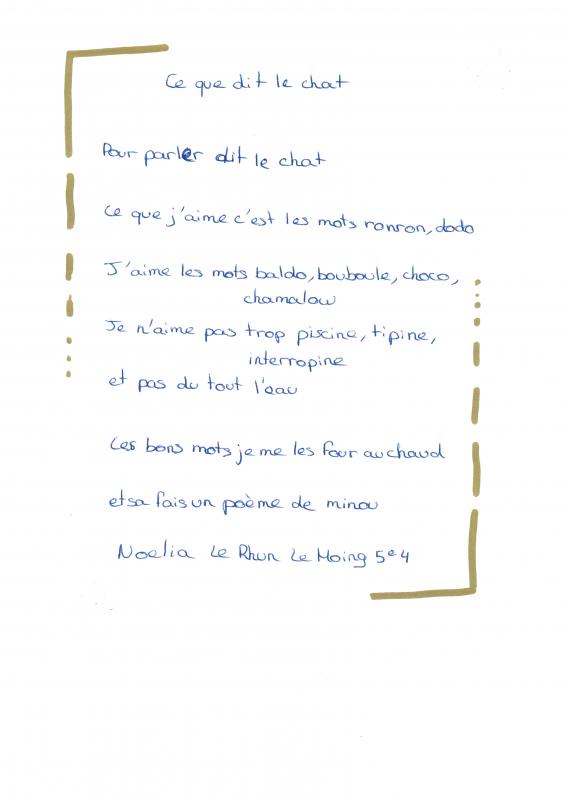 Ce que dit le chat
Pour parler dit le chat
Ce que j'aime c'est les mots ronron, dodo
J'aime les mots baldo, bouboule, choco,
chamalow
Je n'aime pas trop piscine, tipine,
interropine
et pas du tout l'eau
Les bons mots je me les four au chaud
et sa fais un poème de minou
Noelia Le Rhun Le Moing 5e4